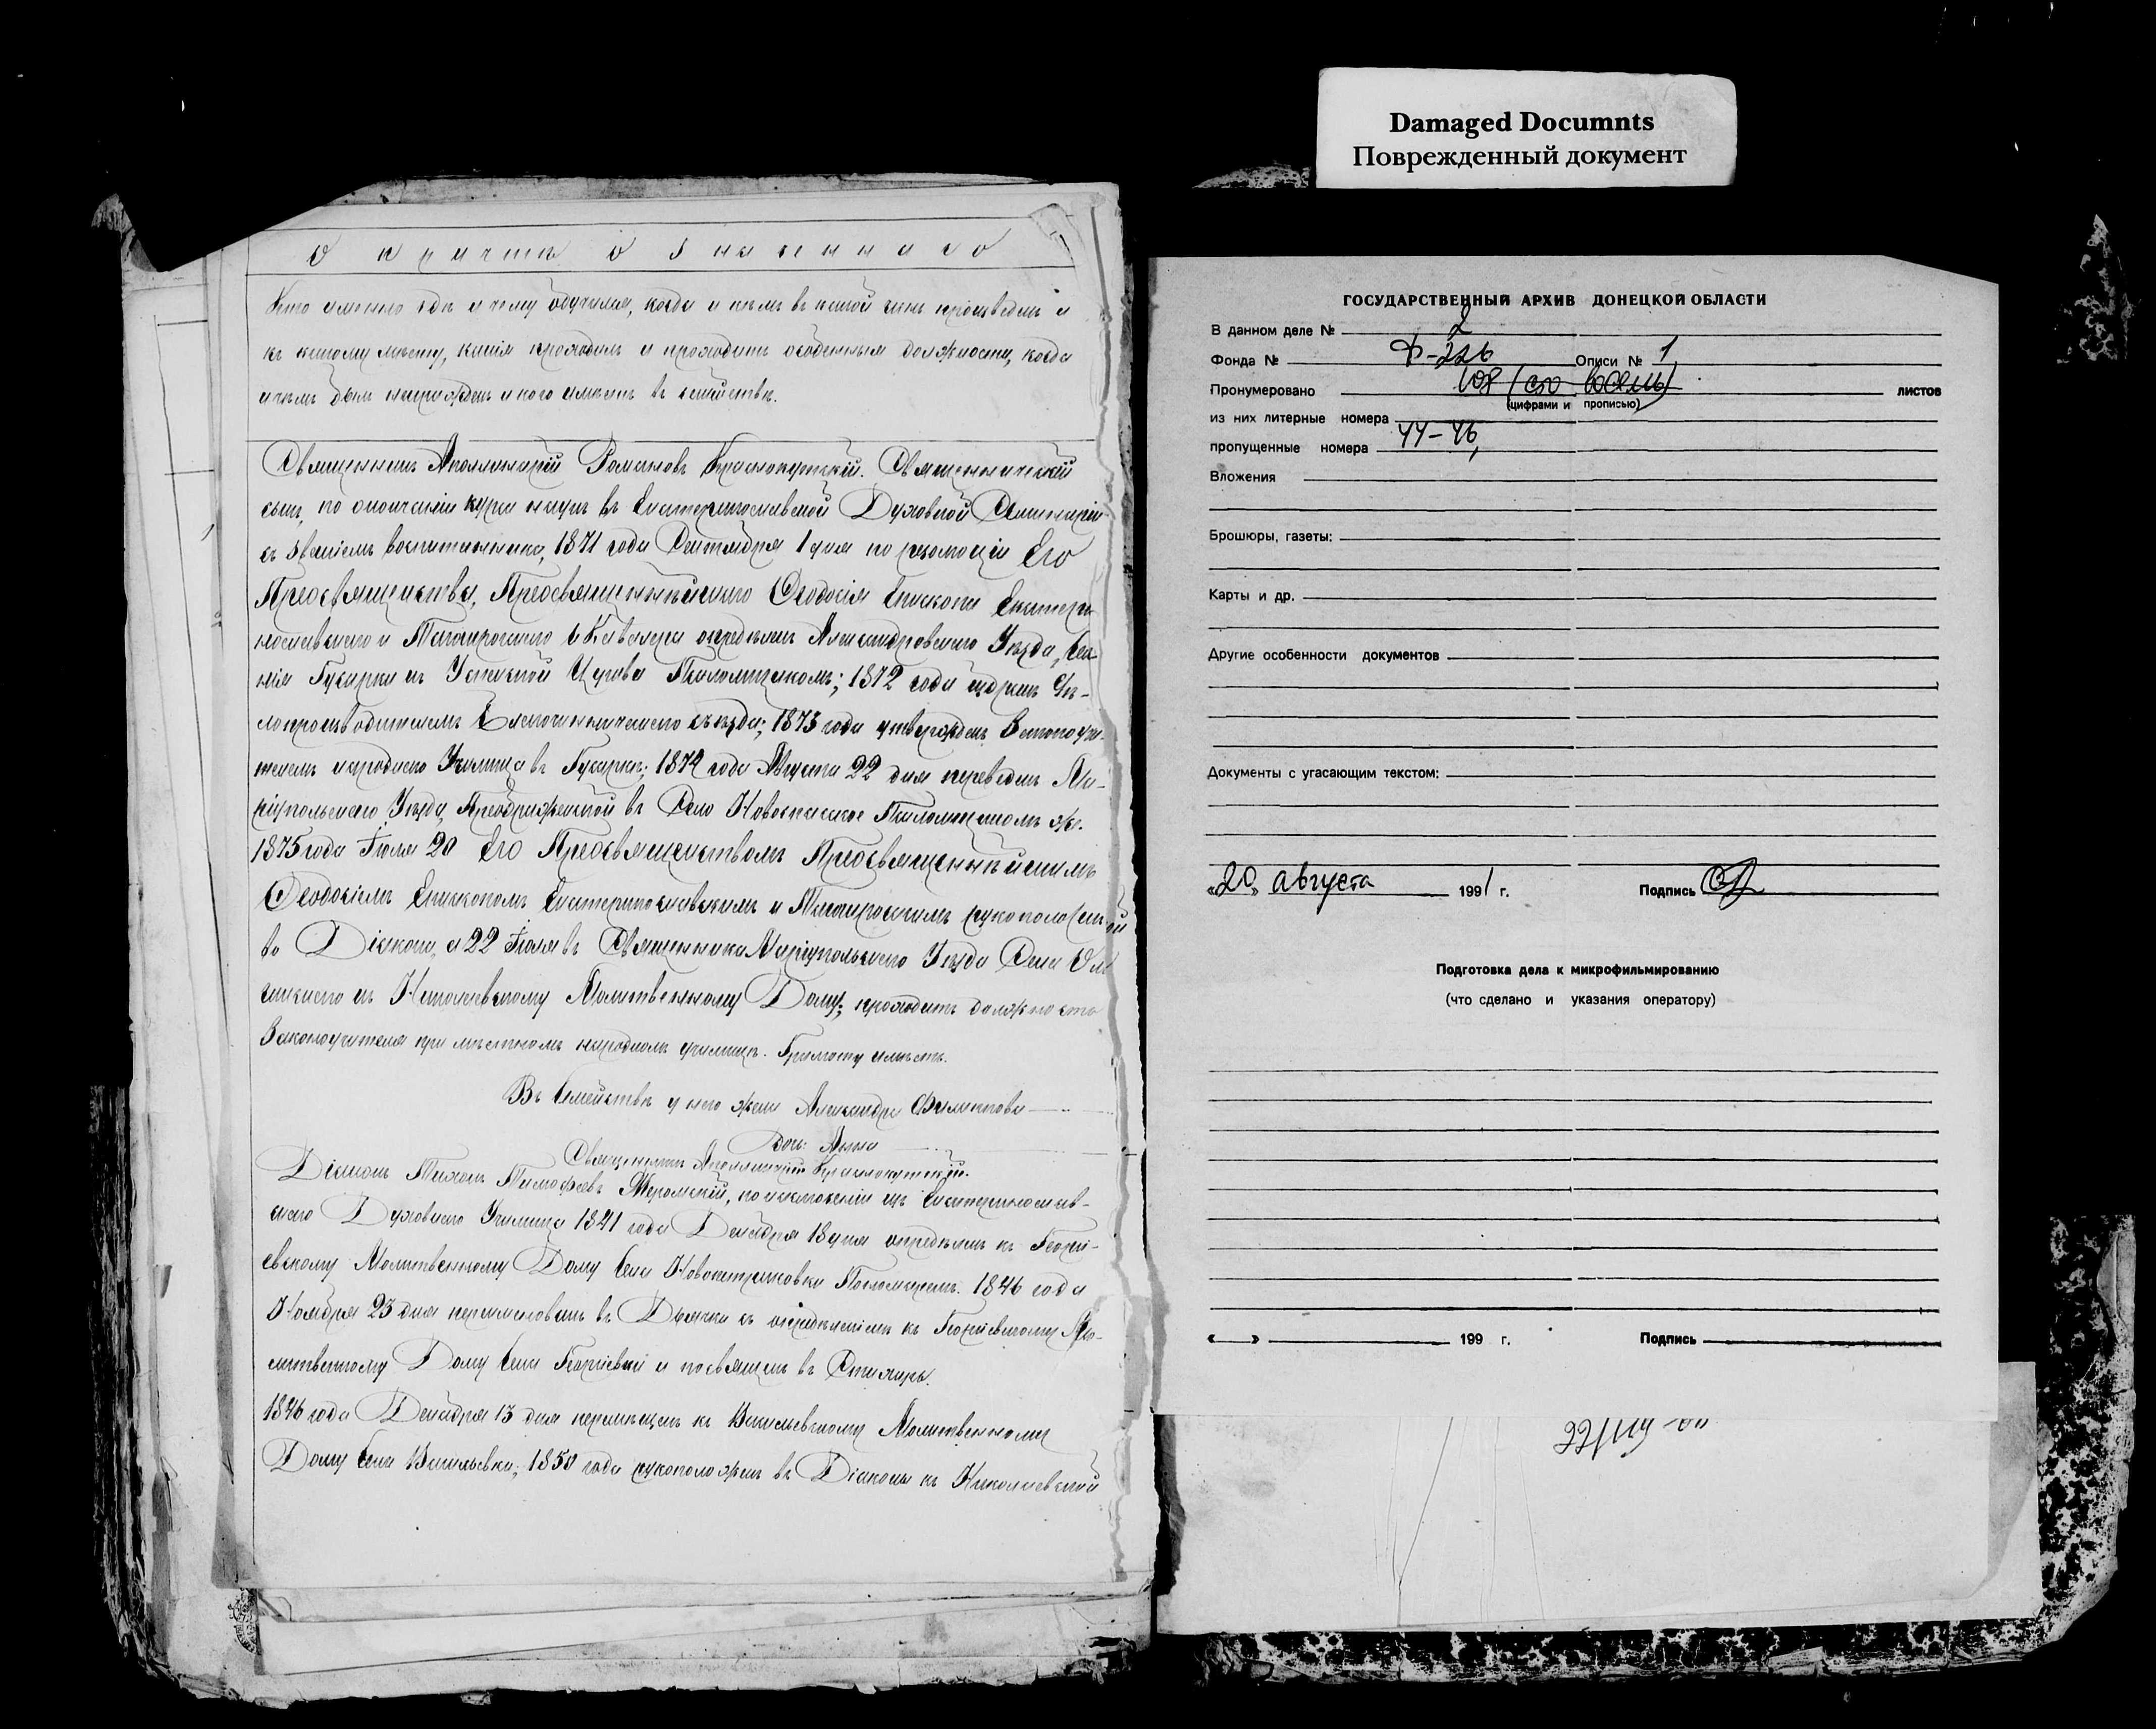 Damaged Documnts
Поврежденный документ
О причтѣ означеннаго
Кто именно гдѣ и чему обучился, когда и кѣмъ въ какой чинъ произведенъ и
къ какому мѣсту, какія проходилъ и проходитъ особенныя должности, когда
и чѣмъ былъ награжденъ и кого имѣетъ въ семействѣ.
Священникъ Аполлинарій Романовъ Краснокутскій. Священническій
сынъ, по окончаніи курса наукъ въ Екатеринославской Духовной Семинаріи
съ званіемъ воспитанника, 1871 года Сентября 1 дня по резолюціи Его
Преосвященства, Преосвященнѣйшаго Ѳеодосія Епископа Екатери
нославскаго и Таганрогскаго и Кавалера опредѣленъ Александровскаго Уѣзда, Се
нія Гусарки къ Успенской Церкви Псаломщикомъ; 1872 года избранъ Дѣ-
лопроизводителемъ Благочинническаго съѣзда; 1873 года утвержденъ Законоучи-
телемъ народнаго Училища въ Гусаркѣ; 1874 года Августа 22 дня переведенъ Ма-
ріупольскаго Уѣзда, Преображенской въ Село Новоспасское Псаломщикомъ же.
1875 года Іюля 20 Его Преосвященствомъ Преосвященнѣйшимъ
Ѳеодосіемъ Епископомъ Екатеринославскимъ и Таганрогскимъ рукоположенъ
во Діакона, а 22 Іюля въ Священника Маріупольскаго Уѣзда Села
къ Николаевскому Молитвенному Дому; проходитъ должность
Законоучителя при мѣстномъ народномъ училищѣ. Грамоту имѣетъ.
Въ Семействѣ у него жена Александра Филиппова
Дочь Анна
Священникъ Аполлинарій Краснокутскій.
Діаконъ Тихонъ Тимофѣевъ Жеромскій, по исключеніи изъ Екатеринослав-
скаго Духовнаго Училища 1841 года Декабря 18 дня опредѣленъ къ Георгі-
евскому Молитвенному Дому Села Новопетриковки Пономаремъ. 1846 года
Ноября 23 дня перечисленъ въ Дьячки съ опредѣленіемъ къ Георгіевскому Мо-
литвенному Дому Села Георгіевки и посвященъ въ Стихарь.
1846 года Декабря 13 дня перемѣщенъ къ Васильевскому Молитвенному
Дому Села Васильевки; 1850 года рукоположенъ въ Діаконы къ Николаевской
ГОСУДАРСТВЕННЫЙ АРХИВ ДОНЕЦКОЙ ОБЛАСТИ
В данном деле № 2
Фонда № Ф-226 Описи № 1
Пронумеровано 108 (сто восемь) листов
(цифрами и прописью)
из них литерные номера
пропущенные номера 44-46,
Вложения
Брошюры, газеты:
Карты и др.
Другие особенности документов
Документы с угасающим текстом:
«20» августа 1991 г. Подпись
Подготовка дела к микрофильмированию
(что сделано и указания оператору)
« » 199 г. Подпись